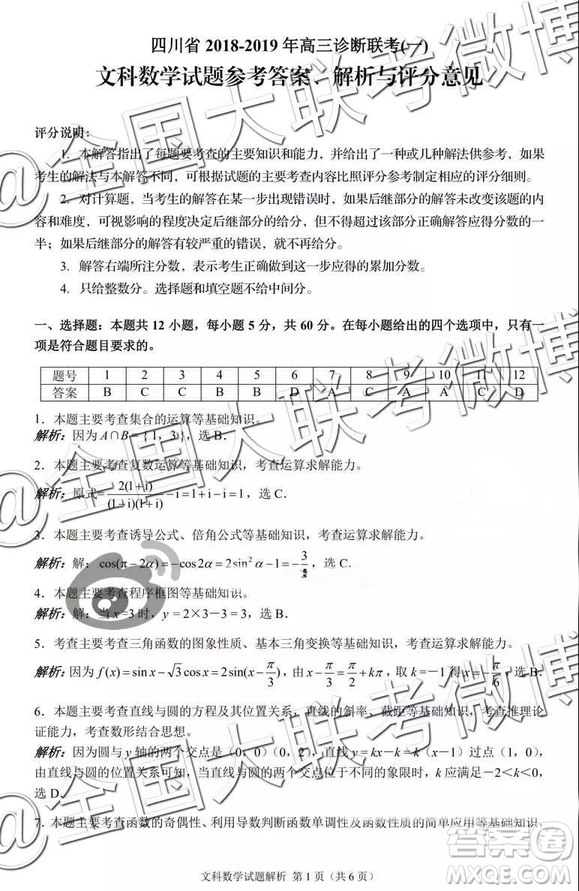 四川省 2018-2019 年高三诊断联考(一)
文科数学试题参考答案、解析与评分意见
评分说明：
1．本解答指出了每题要考查的主要知识和能力，并给出了一种或几种解法供参考，如果
考生的解法与本解答不同，可根据试题的主要考查内容比照评分参考制定相应的评分细则．
2．对计算题，当考生的解答在某一步出现错误时，如果后继部分的解答未改变该题的内
容和难度，可视影响的程度决定后继部分的给分，但不得超过该部分正确解答应得分数的一
半；如果后继部分的解答有较严重的错误，就不再给分．
3．解答右端所注分数，表示考生正确做到这一步应得的累加分数．
4．只给整数分。选择题和填空题不给中间分．
一、选择题：本题共 12 小题，每小题 5 分，共 60 分。在每小题给出的四个选项中，只有一
项是符合题目要求的．
题号 1 2 3 4 5 6 7 8 9 10 11 12
答案 B C C B B D A A C D
1．本题主要考查集合的运算等基础知识．
解析：因为 A∩B={1，3}，选 B．
2．本题主要考查复数运算等基础知识，考查运算求解能力．
解析：原式=2(1+i)/(1-i)(1+i)-i=1+i-i=1，选 C．
3．本题主要考查诱导公式、倍角公式等基础知识，考查运算求解能力．
解析：解：cos(π-2α)=-cos2α=2sin²α-1=-3/，选 C．
4．本题主要考查程序框图等基础知识．
解析：解：当 x=3 时，y=2×3-3=3，选 B．
5．考查主要考查三角函数的图象性质、基本三角变换等基础知识．
解析：因为 f(x)=sinx-√3cosx=2sin(x-π/3)，由 x-π/3=π/2+kπ，取 k=-1 得 x=-π/6，选 B．
6．本题主要考查直线与圆的方程及其位置关系，直线的斜率、截距等基础知识，考查推理论
证能力，考查数形结合思想．
解析：因为圆与 y 轴的两个交点是（0，0）（0，2），直线 y=kx-k=k（x-1）过点（1，0），
由直线与圆的位置关系可知，当直线与圆的交点位于不同的象限时，当应满足-2<k<0，
选 D．
7．本题主要考查函数的奇偶性、利用导数判断函数单调性及函数性质的简单应用等基础知识，
文科数学试题解析 第 1 页（共 6 页）
@全国大联考微博
@全国大联考微博
@全国大联考微博
答案圈
MXQE.COM